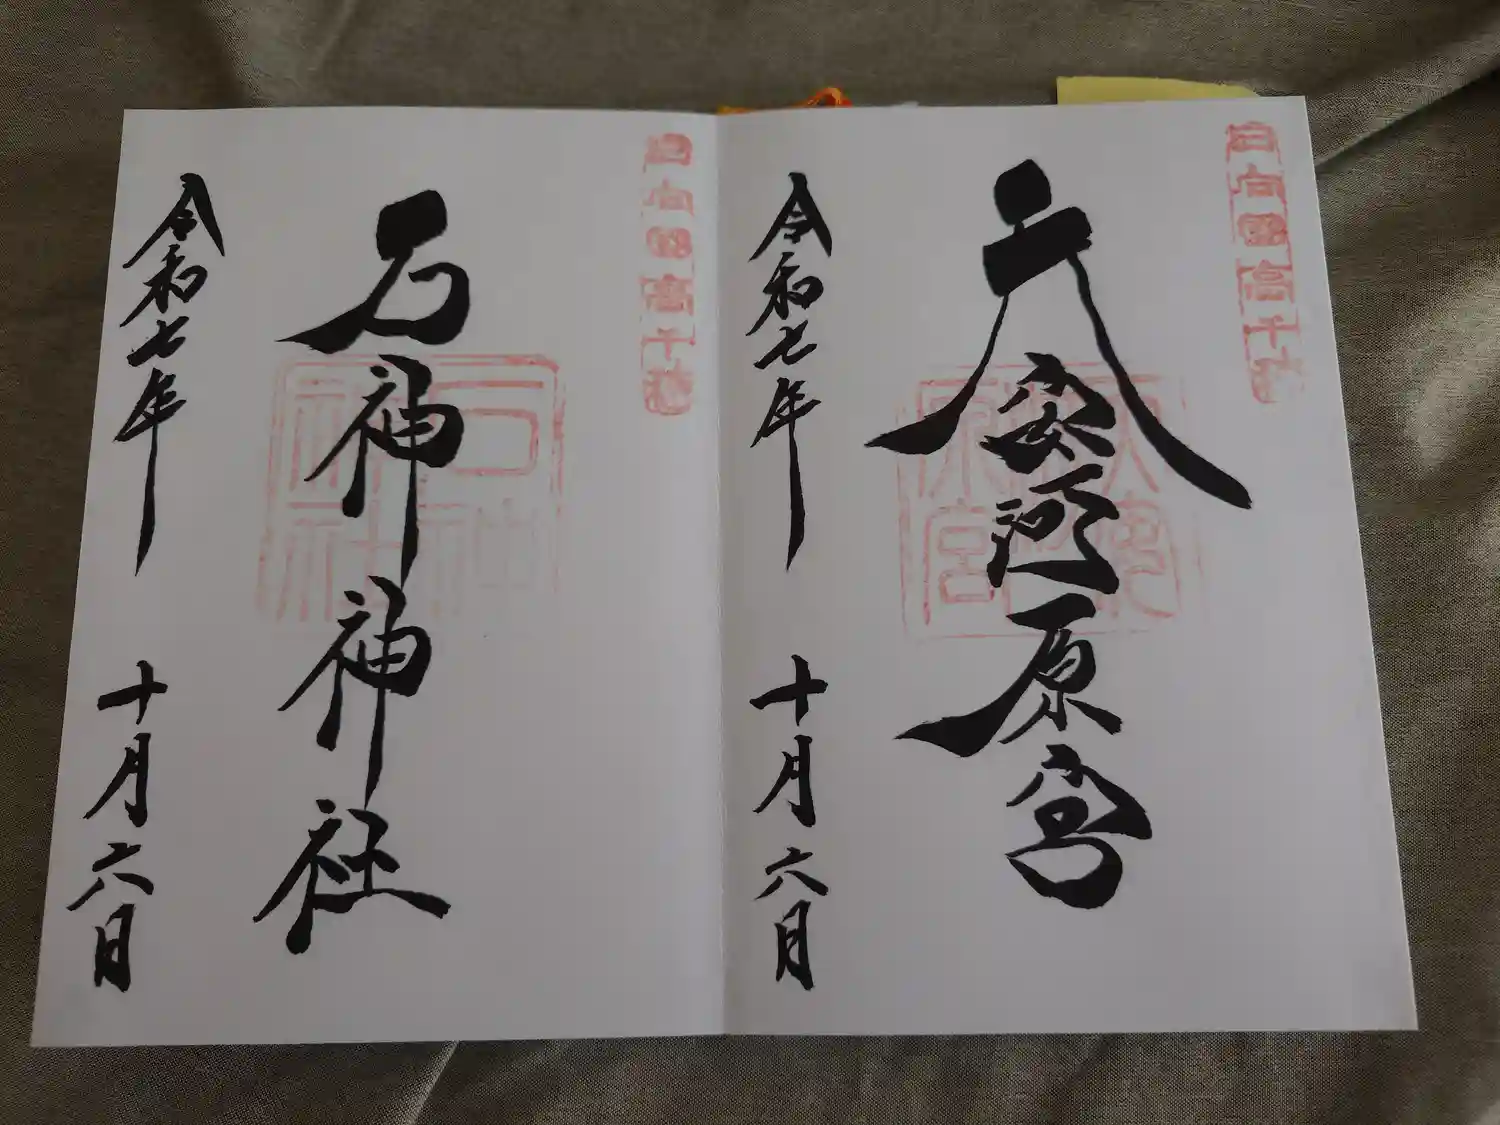 日向國高千穂
天安河原宮
令和七年 十月六日
日向國高千穂
石神神社
石神神社
令和七年 十月六日